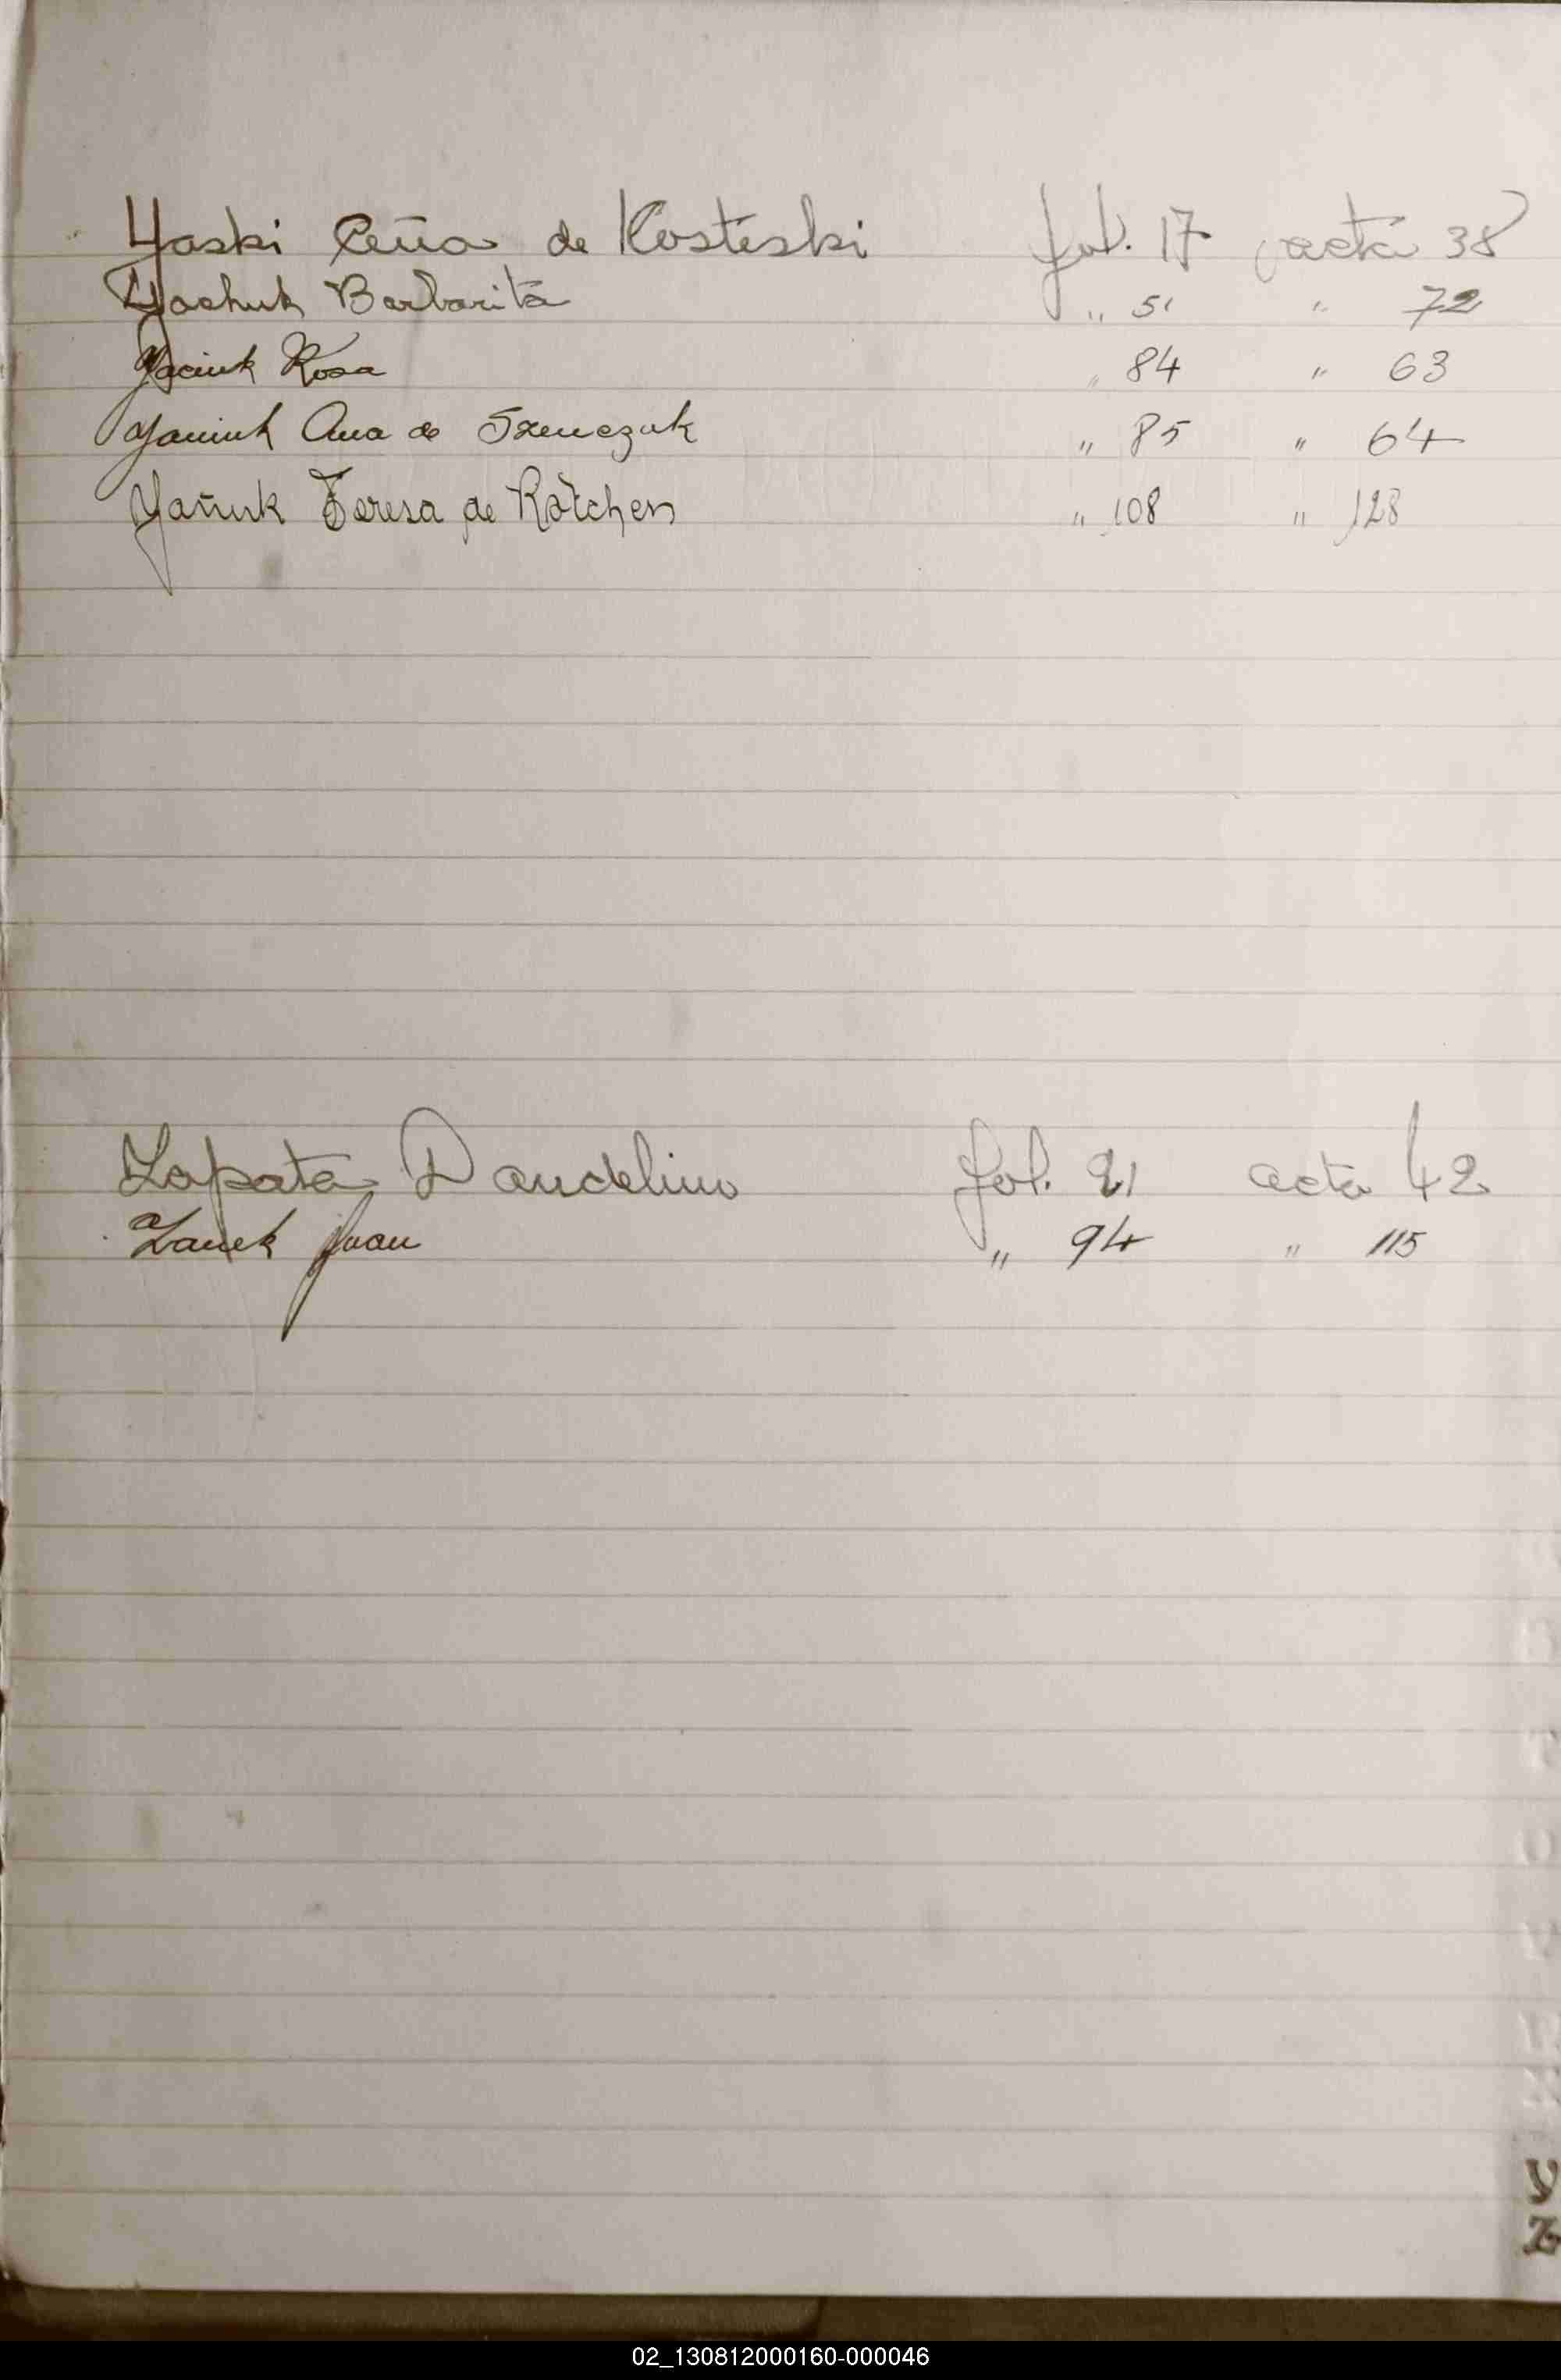 Yaski Ceña de Kosteski fol. 17 acta 38
Yachuk Barbarita " 51 " 72
Yaciuk Rosa " 84 " 63
Yaniuk Ana de Szewczuk " 85 " 64
Yañuk Teresa de Rotchen " 108 " 128
Zapata Dandelino fol. 21 acta 42
Zanek Juan " 94 " 115
Y
Z
02_130812000160-000046